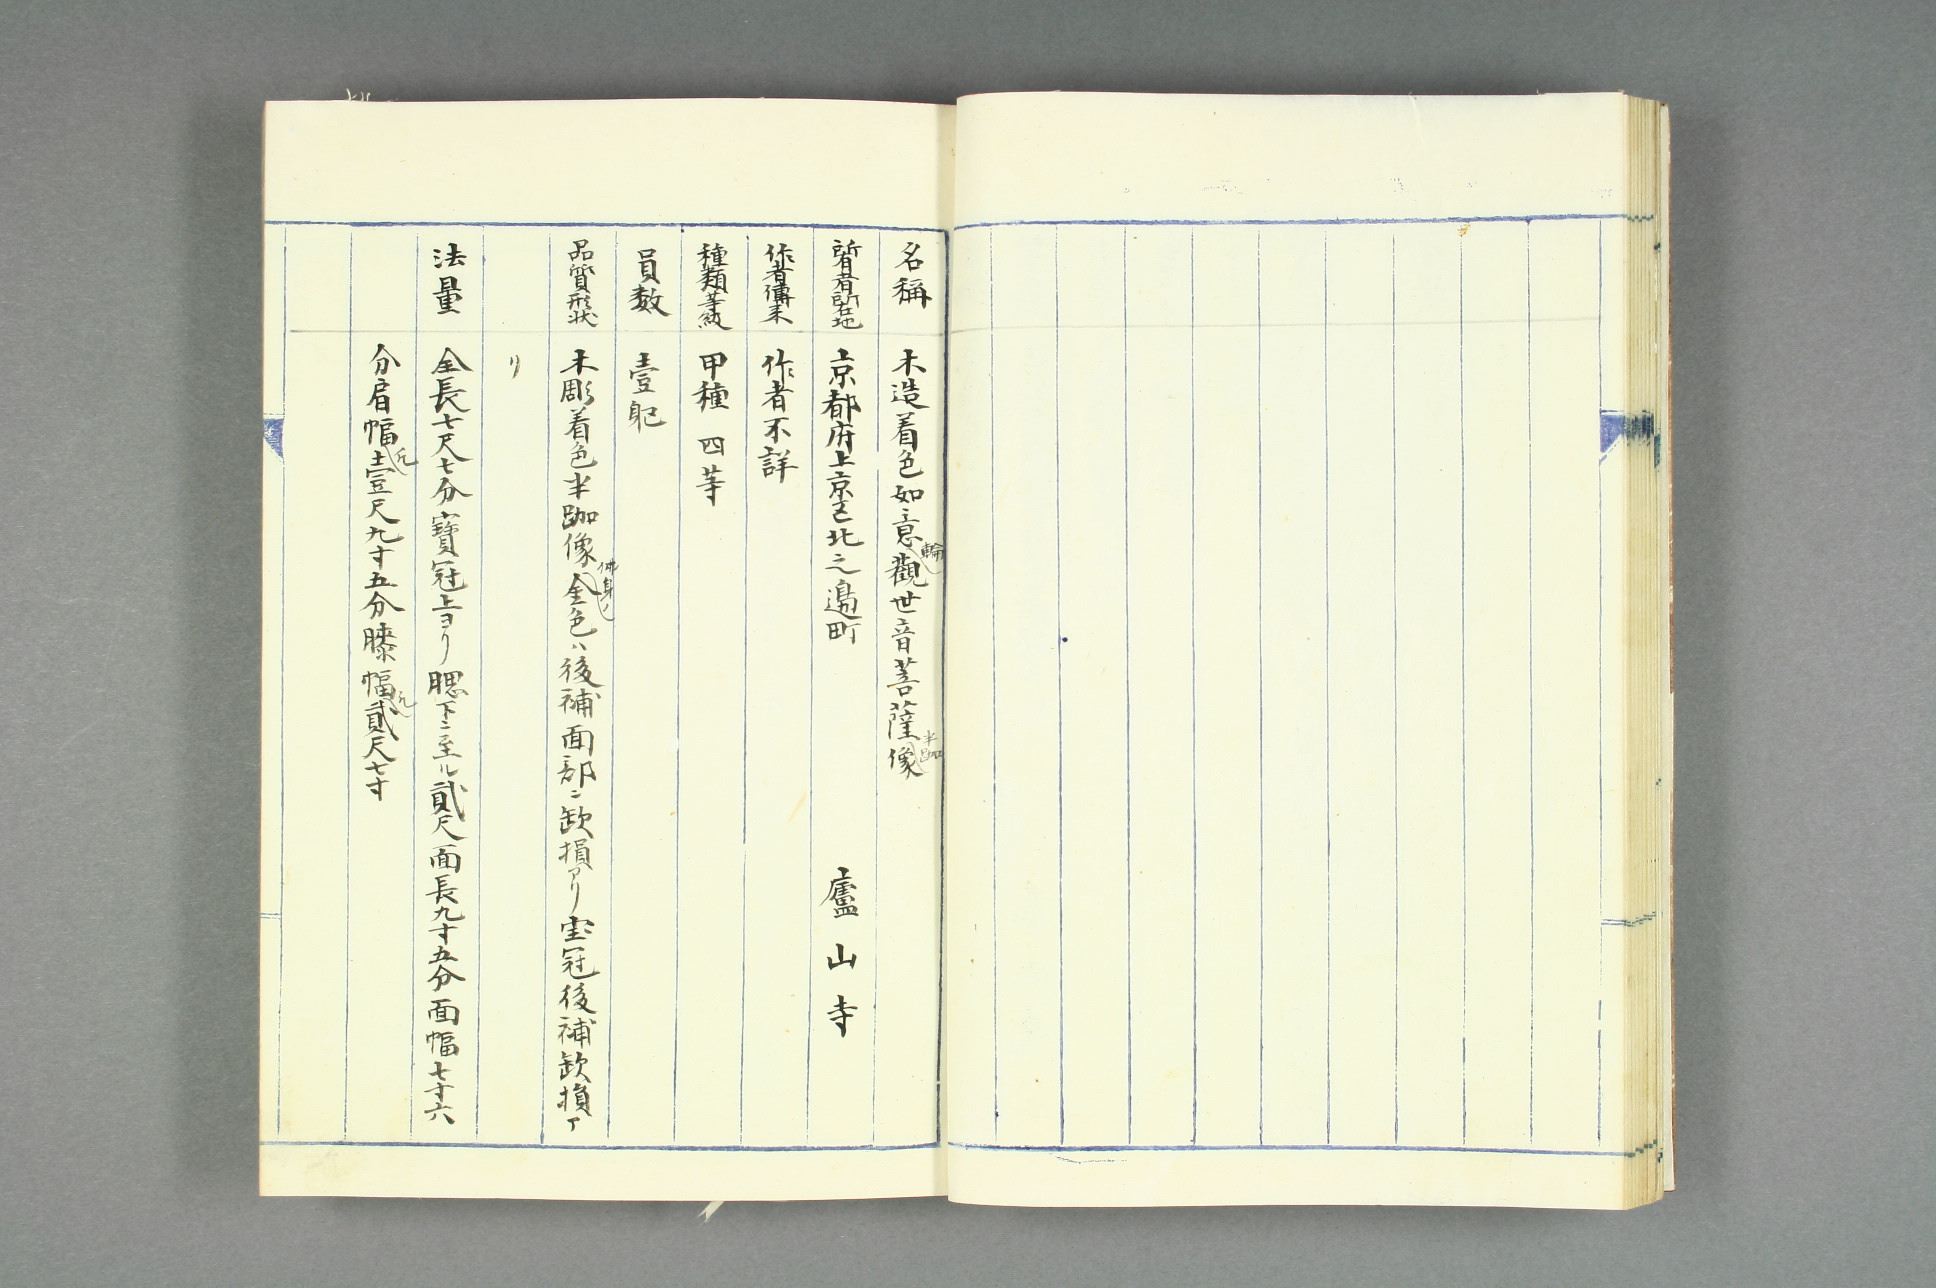 名稱 木造着色如意輪觀世音菩薩半跏像
所有者所在地 京都府上京区北之邉町 廬山寺
作者傳来 作者不詳
種類等級 甲種 四等
員数 壹躯
品質形状 木彫着色半跏像佛身ノ金色ハ後補面部ニ欠損アリ宝冠後補欠損ア
リ
法量 全長七尺七分寳冠上ヨリ腮下ニ至ル貳尺面長九寸五分面幅七寸六
分肩幅凡壹尺九寸五分膝幅凡貳尺七寸